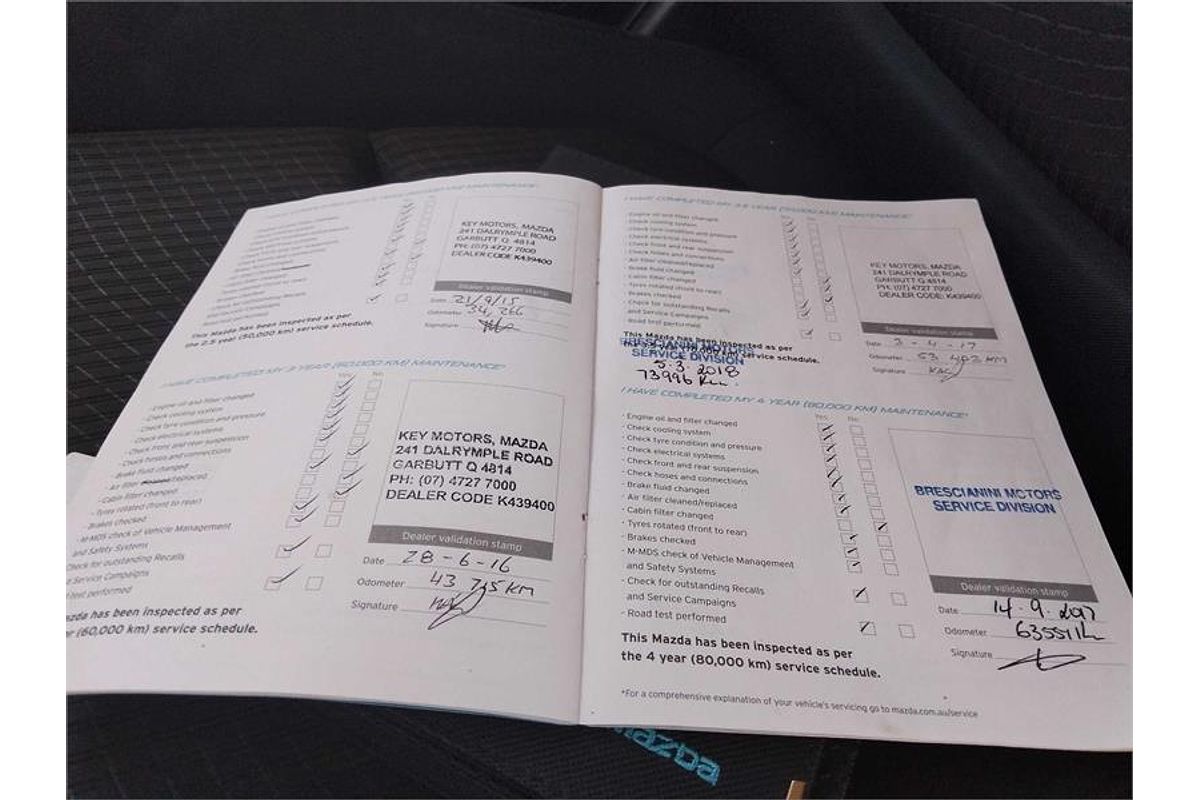 KEY MOTORS, MAZDA
241 DALRYMPLE ROAD
GARBUTT Q 4814
PH: (07) 4727 7000
DEALER CODE K439400
Dealer validation stamp
Date 21/9/15
Odometer 34,266
Signature
This Mazda has been inspected as per
the 2.5 year (50,000 km) service schedule.
I HAVE COMPLETED MY 3 YEAR (60,000 KM) MAINTENANCE*
Yes No
- Engine oil and filter changed
- Check cooling system
- Check tyre condition and pressure
- Check electrical systems
- Check front and rear suspension
- Check hoses and connections
- Brake fluid changed
- Air filter /replaced
- Cabin filter changed
- Tyres rotated (front to rear)
- Brakes checked
- M-MDS check of Vehicle Management
and Safety Systems
heck for outstanding Recalls
d Service Campaigns
d test performed
KEY MOTORS, MAZDA
241 DALRYMPLE ROAD
GARBUTT Q 4814
PH: (07) 4727 7000
DEALER CODE K439400
Dealer validation stamp
Date 28-6-16
Odometer 43 715 KM
Signature
azda has been inspected as per
r (60,000 km) service schedule.
I HAVE COMPLETED MY 3.5 YEAR (70,000 KM) MAINTENANCE*
Yes No
- Engine oil and filter changed
- Check cooling system
- Check tyre condition and pressure
- Check electrical systems
- Check front and rear suspension
- Check hoses and connections
- Air filter cleaned/replaced
- Brake fluid changed
- Cabin filter changed
- Tyres rotated (front to rear)
- Brakes checked
- Check for outstanding Recalls
and Service Campaigns
- Road test performed
KEY MOTORS, MAZDA
241 DALRYMPLE ROAD
GARBUTT Q 4814
PH: (07) 4727 7000
DEALER CODE: K439400
Dealer validation stamp
Date 3-4-17
Odometer 53 402 KM
Signature
This Mazda has been inspected as per
the 3.5 year (70,000 km) service schedule.
BRESCIANINI MOTORS
SERVICE DIVISION
5.3.2018
73996 Km.
I HAVE COMPLETED MY 4 YEAR (80,000 KM) MAINTENANCE*
Yes No
- Engine oil and filter changed
- Check cooling system
- Check tyre condition and pressure
- Check electrical systems
- Check front and rear suspension
- Check hoses and connections
- Brake fluid changed
- Air filter cleaned/replaced
- Cabin filter changed
- Tyres rotated (front to rear)
- Brakes checked
- M-MDS check of Vehicle Management
and Safety Systems
- Check for outstanding Recalls
and Service Campaigns
- Road test performed
BRESCIANINI MOTORS
SERVICE DIVISION
Dealer validation stamp
Date 14.9.2017
Odometer
Signature
This Mazda has been inspected as per
the 4 year (80,000 km) service schedule.
*For a comprehensive explanation of your vehicle's servicing go to mazda.com.au/service
mazda